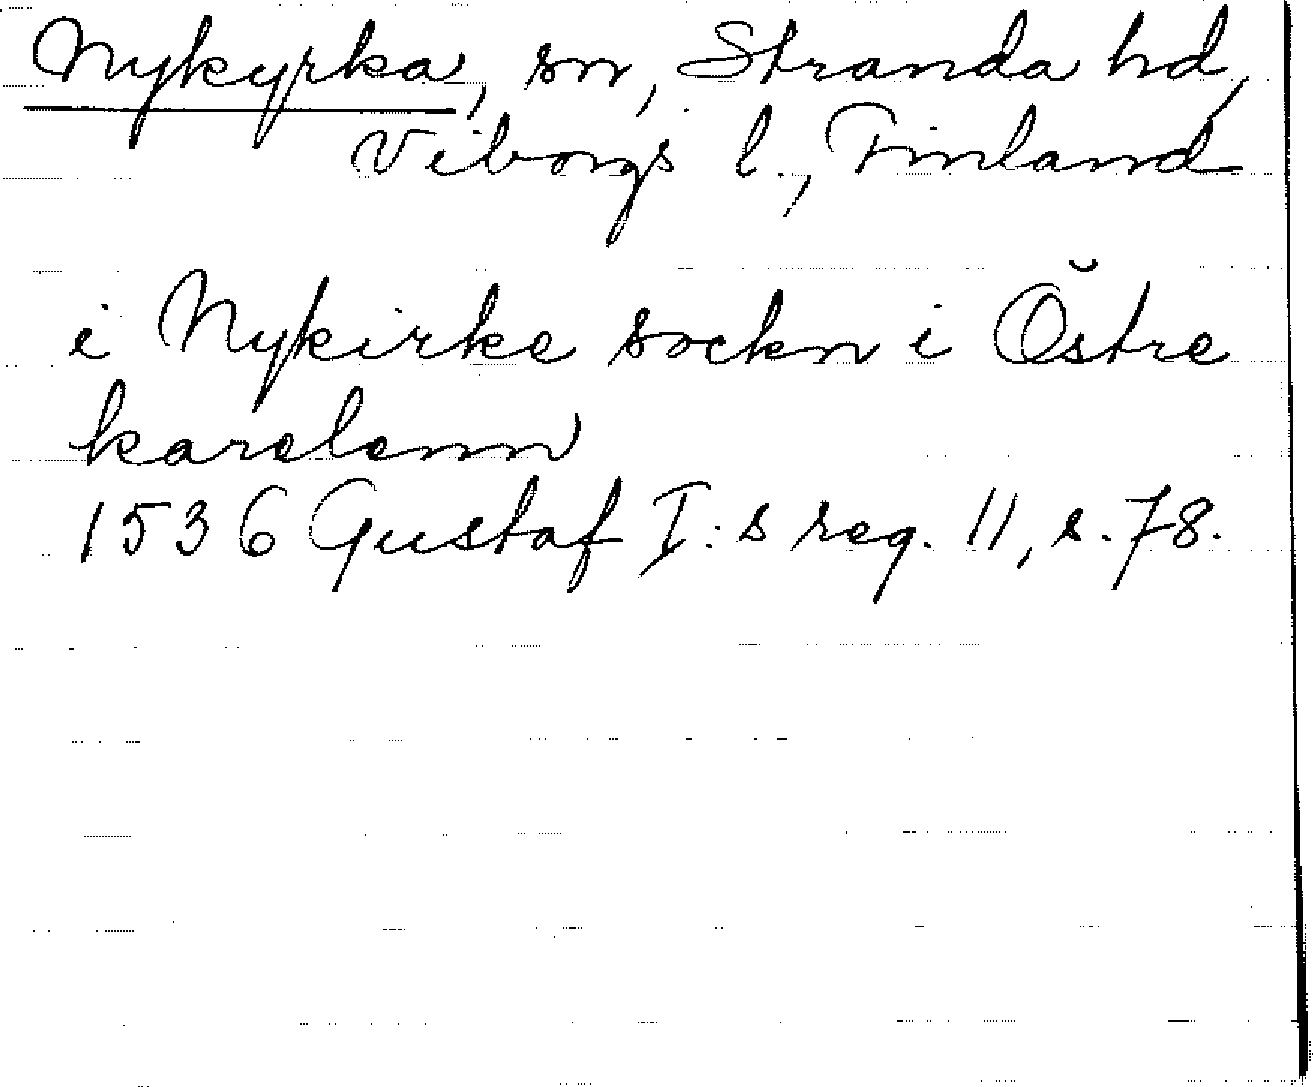 Nykyrka, sn, Stranda hd,
Viborgs l., Finland
i Nykirke sockn i Östre
karelenn
1536 Gustaf I:s reg. 11, s. 78.